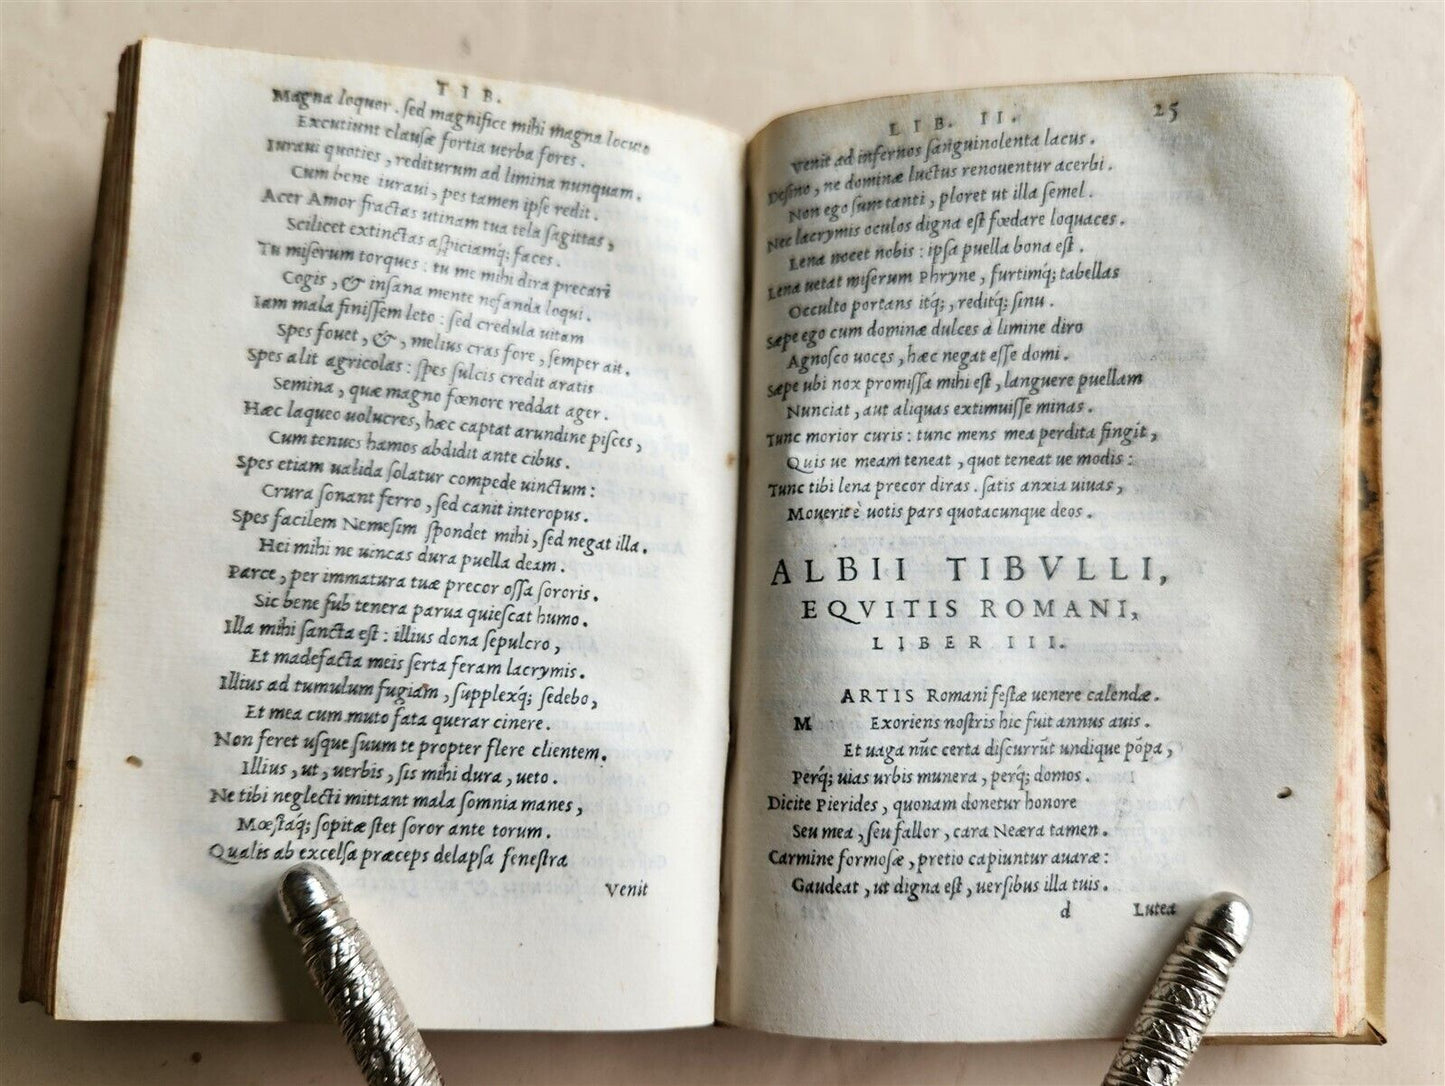 TIB.
Magna loquor. sed magnifice mihi magna locuto
Excutiunt clausæ fortia uerba fores.
Iuraui quoties, rediturum ad limina nunquam.
Cum bene iuraui, pes tamen ipse redit.
Acer Amor fractas utinam tua tela sagittas,
Scilicet extinctas aspiciamq; faces.
Tu miserum torques: tu me mihi dira precari
Cogis, & insana mente nefanda loqui.
Iam mala finissem leto: sed credula uitam
Spes fouet, &, melius cras fore, semper ait.
Spes alit agricolas: spes sulcis credit aratis
Semina, quæ magno fœnore reddat ager.
Hæc laqueo uolucres, hæc captat arundine pisces,
Cum tenues hamos abdidit ante cibus.
Spes etiam ualida solatur compede uinctum:
Crura sonant ferro, sed canit interopus.
Spes facilem Nemesim spondet mihi, sed negat illa.
Hei mihi ne uincas dura puella deam.
Parce, per immatura tuæ precor ossa sororis.
Sic bene sub tenera parua quiescat humo.
Illa mihi sancta est: illius dona sepulcro,
Et madefacta meis serta feram lacrymis.
Illius ad tumulum fugiam, supplexq́; sedebo,
Et mea cum muto fata querar cinere.
Non feret usque suum te propter flere clientem.
Illius, ut, uerbis, sis mihi dura, ueto.
Ne tibi neglecti mittant mala somnia manes,
Mœstaq́; sopitæ stet soror ante torum.
Qualis ab excelsa præceps delapsa fenestra
Venit
LIB. II. 25
Venit ad infernos sanguinolenta lacus.
Desino, ne dominæ luctus renouentur acerbi.
Non ego sum tanti, ploret ut illa semel.
Nec lacrymis oculos digna est fœdare loquaces.
Lena nocet nobis: ipsa puella bona est.
Lena uetat miserum Phryne, furtimq́; tabellas
Occulto portans itq́;, reditq́; sinu.
Sæpe ego cum dominæ dulces à limine diro
Agnosco uoces, hæc negat esse domi.
Sæpe ubi nox promissa mihi est, languere puellam
Nunciat, aut aliquas extimuisse minas.
Tunc morior curis: tunc mens mea perdita fingit,
Quis ue meam teneat, quot teneat ue modis:
Tunc tibi lena precor diras. satis anxia uiuas,
Mouerit è uotis pars quotacunque deos.
ALBII TIBVLLI,
EQVITIS ROMANI,
LIBER III.
M ARTIS Romani festæ uenere calendæ.
Exoriens nostris hic fuit annus auis.
Et uaga nũc certa discurrũt undique põpa,
Perq́; uias urbis munera, perq́; domos.
Dicite Pierides, quonam donetur honore
Seu mea, seu fallor, cara Neæra tamen.
Carmine formosæ, pretio capiuntur auaræ:
Gaudeat, ut digna est, uersibus illa tuis.
d Lutea